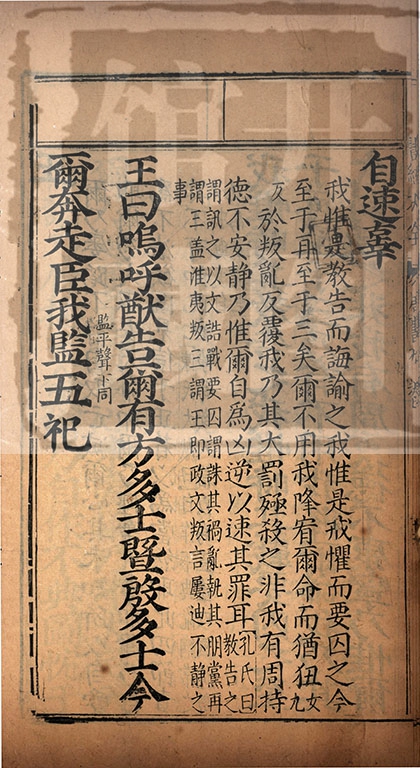 自速辜
我惟是教告而誨諭之我惟是戒懼而要囚之今
至于再至于三矣爾不用我降宥爾命而猶狃女九
反於叛亂反覆我乃其大罰殛殺之非我有周持
德不安靜乃惟爾自為凶逆以速其罪耳孔氏曰教告之
謂訊之以文誥戰要囚謂誅其禍亂執其朋黨再
謂三監淮夷叛三謂王即政又叛言屢迪不靜之
事
王曰嗚呼猷告爾有方多士暨殷多士今
監平聲下同
爾奔走臣我監五祀